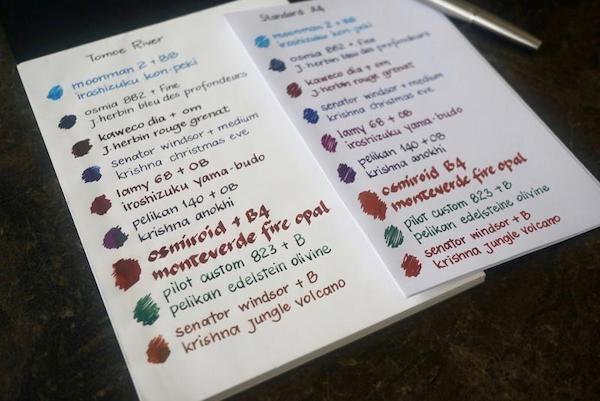 Tomoe River
moonman 2 + BB
iroshizuku kon-peki
osmia 882 + Fine
J. herbin bleu des profondeurs
kaweco dia + om
J. herbin rouge grenat
senator windsor + medium
krishna christmas eve
lamy 68 + OB
iroshizuku yama-budo
pelikan 140 + OB
krishna anokhi
osmiroid + B4
monteverde fire opal
pilot custom 823 + B
pelikan edelstein olivine
senator windsor + B
krishna jungle volcano
Standard A4
moonman 2 + BB
iroshizuku kon-peki
osmia 882 + Fine
J. herbin bleu des profondeurs
kaweco dia + om
J. herbin rouge grenat
senator windsor + medium
krishna christmas eve
lamy 68 + OB
iroshizuku yama-budo
pelikan 140 + OB
krishna anokhi
osmiroid B4
monteverde fire opal
pilot custom 823 + B
pelikan edelsteine olivine
senator windsor + B
krishna jungle volcano